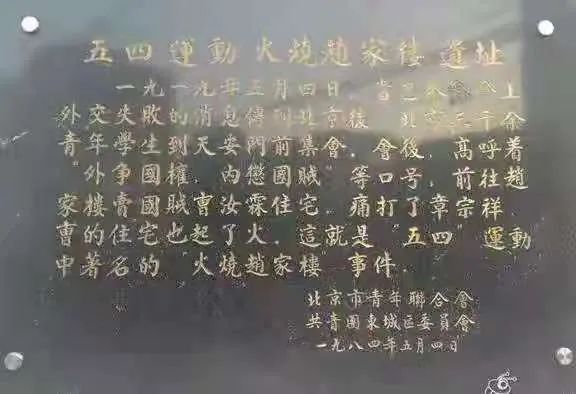 五四運動火燒趙家樓遺址
一九一九年五月四日，當巴黎和會上
外交失敗的消息傳到北京後，北京三千余
青年學生到天安門前集會．會後，高呼着
“外争國權，內懲國賊”等口号，前往趙
家樓賣國賊曹汝霖住宅，痛打了章宗祥．
曹的住宅也起了火，這就是“五四”運動
中著名的“火燒趙家樓”事件．
北京市青年聯合會
共青團東城區委員會
一九八四年五月四日